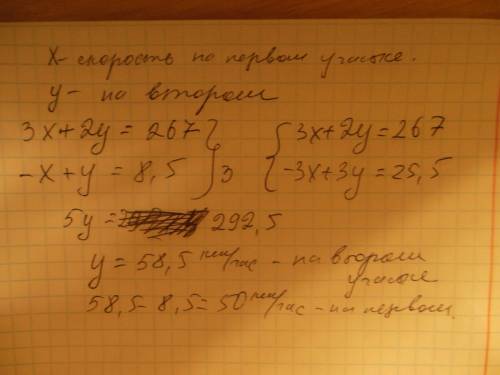 x - скорость на первом участке.
y - на втором
3x+2y = 267 } { 3x+2y=267
-x+y = 8,5 } 3 { -3x+3y=25,5
5y = 292,5
y = 58,5 км/час - на втором
участке
58,5-8,5=50 км/час - на первом.